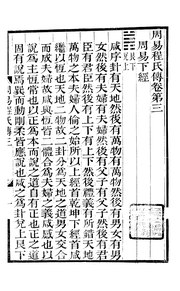 周易程氏傳卷第三
周易下經
䷞ 艮下兌上
咸序卦有天地然後有萬物有萬物然後有男女有男女
然後有夫婦有夫婦然後有父子有父子然後有君
臣有君臣然後有上下有上下然後禮義有所錯天地
萬物之本夫婦人倫之始所以上經首乾坤下經首咸
繼以恆也天地二物故二卦分為天地之道男女交合
而成夫婦故咸與恆皆二體合為夫婦之義咸感也以
說為主恆常也以正為本而說之道自有正也正之道
固有說焉巽而動剛柔皆應說也咸之為卦兌上艮下
周易程氏傳三 一